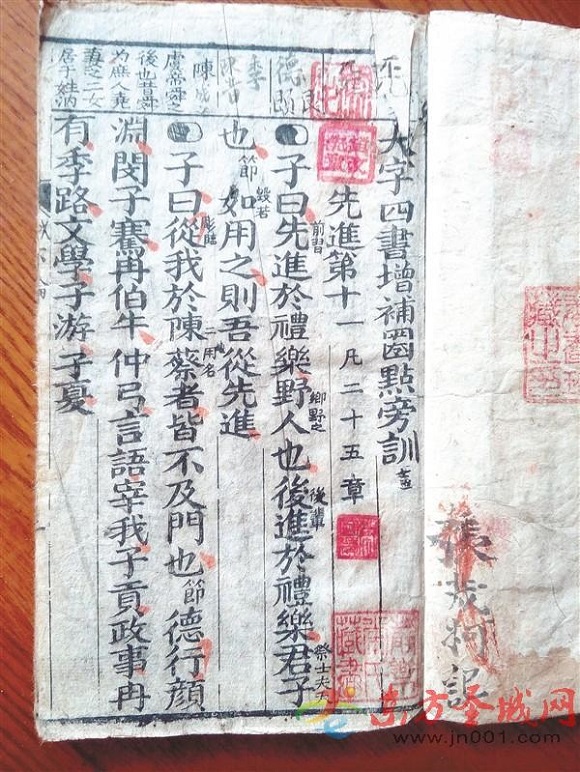 大字四書增補圈點旁訓
先進第十一凡二十五章
子曰先進於禮樂野人也後進於禮樂君子
前習
鄉野之
後輩
也節如用之則吾從先進
毀若
子曰從我於陳蔡者皆不及門也節德行顏
淵閔子騫冉伯牛仲弓言語宰我子貢政事冉
有季路文學子游子夏
德顏
季
陳
虞帝舜之
後也昔舜
为庶人堯
妻之二女
居于
張茂
記
东方圣城网
www.jn001.com